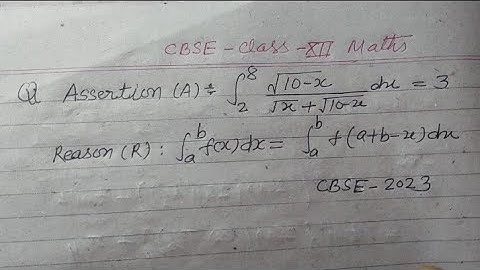 CBSE - Class - XII Maths
Q Assertion (A) : ∫₂⁸ √10-x / √x + √10-x dx = 3
Reason (R) : ∫ₐᵇ f(x) dx = ∫ₐᵇ f(a+b-x) dx
CBSE - 2023